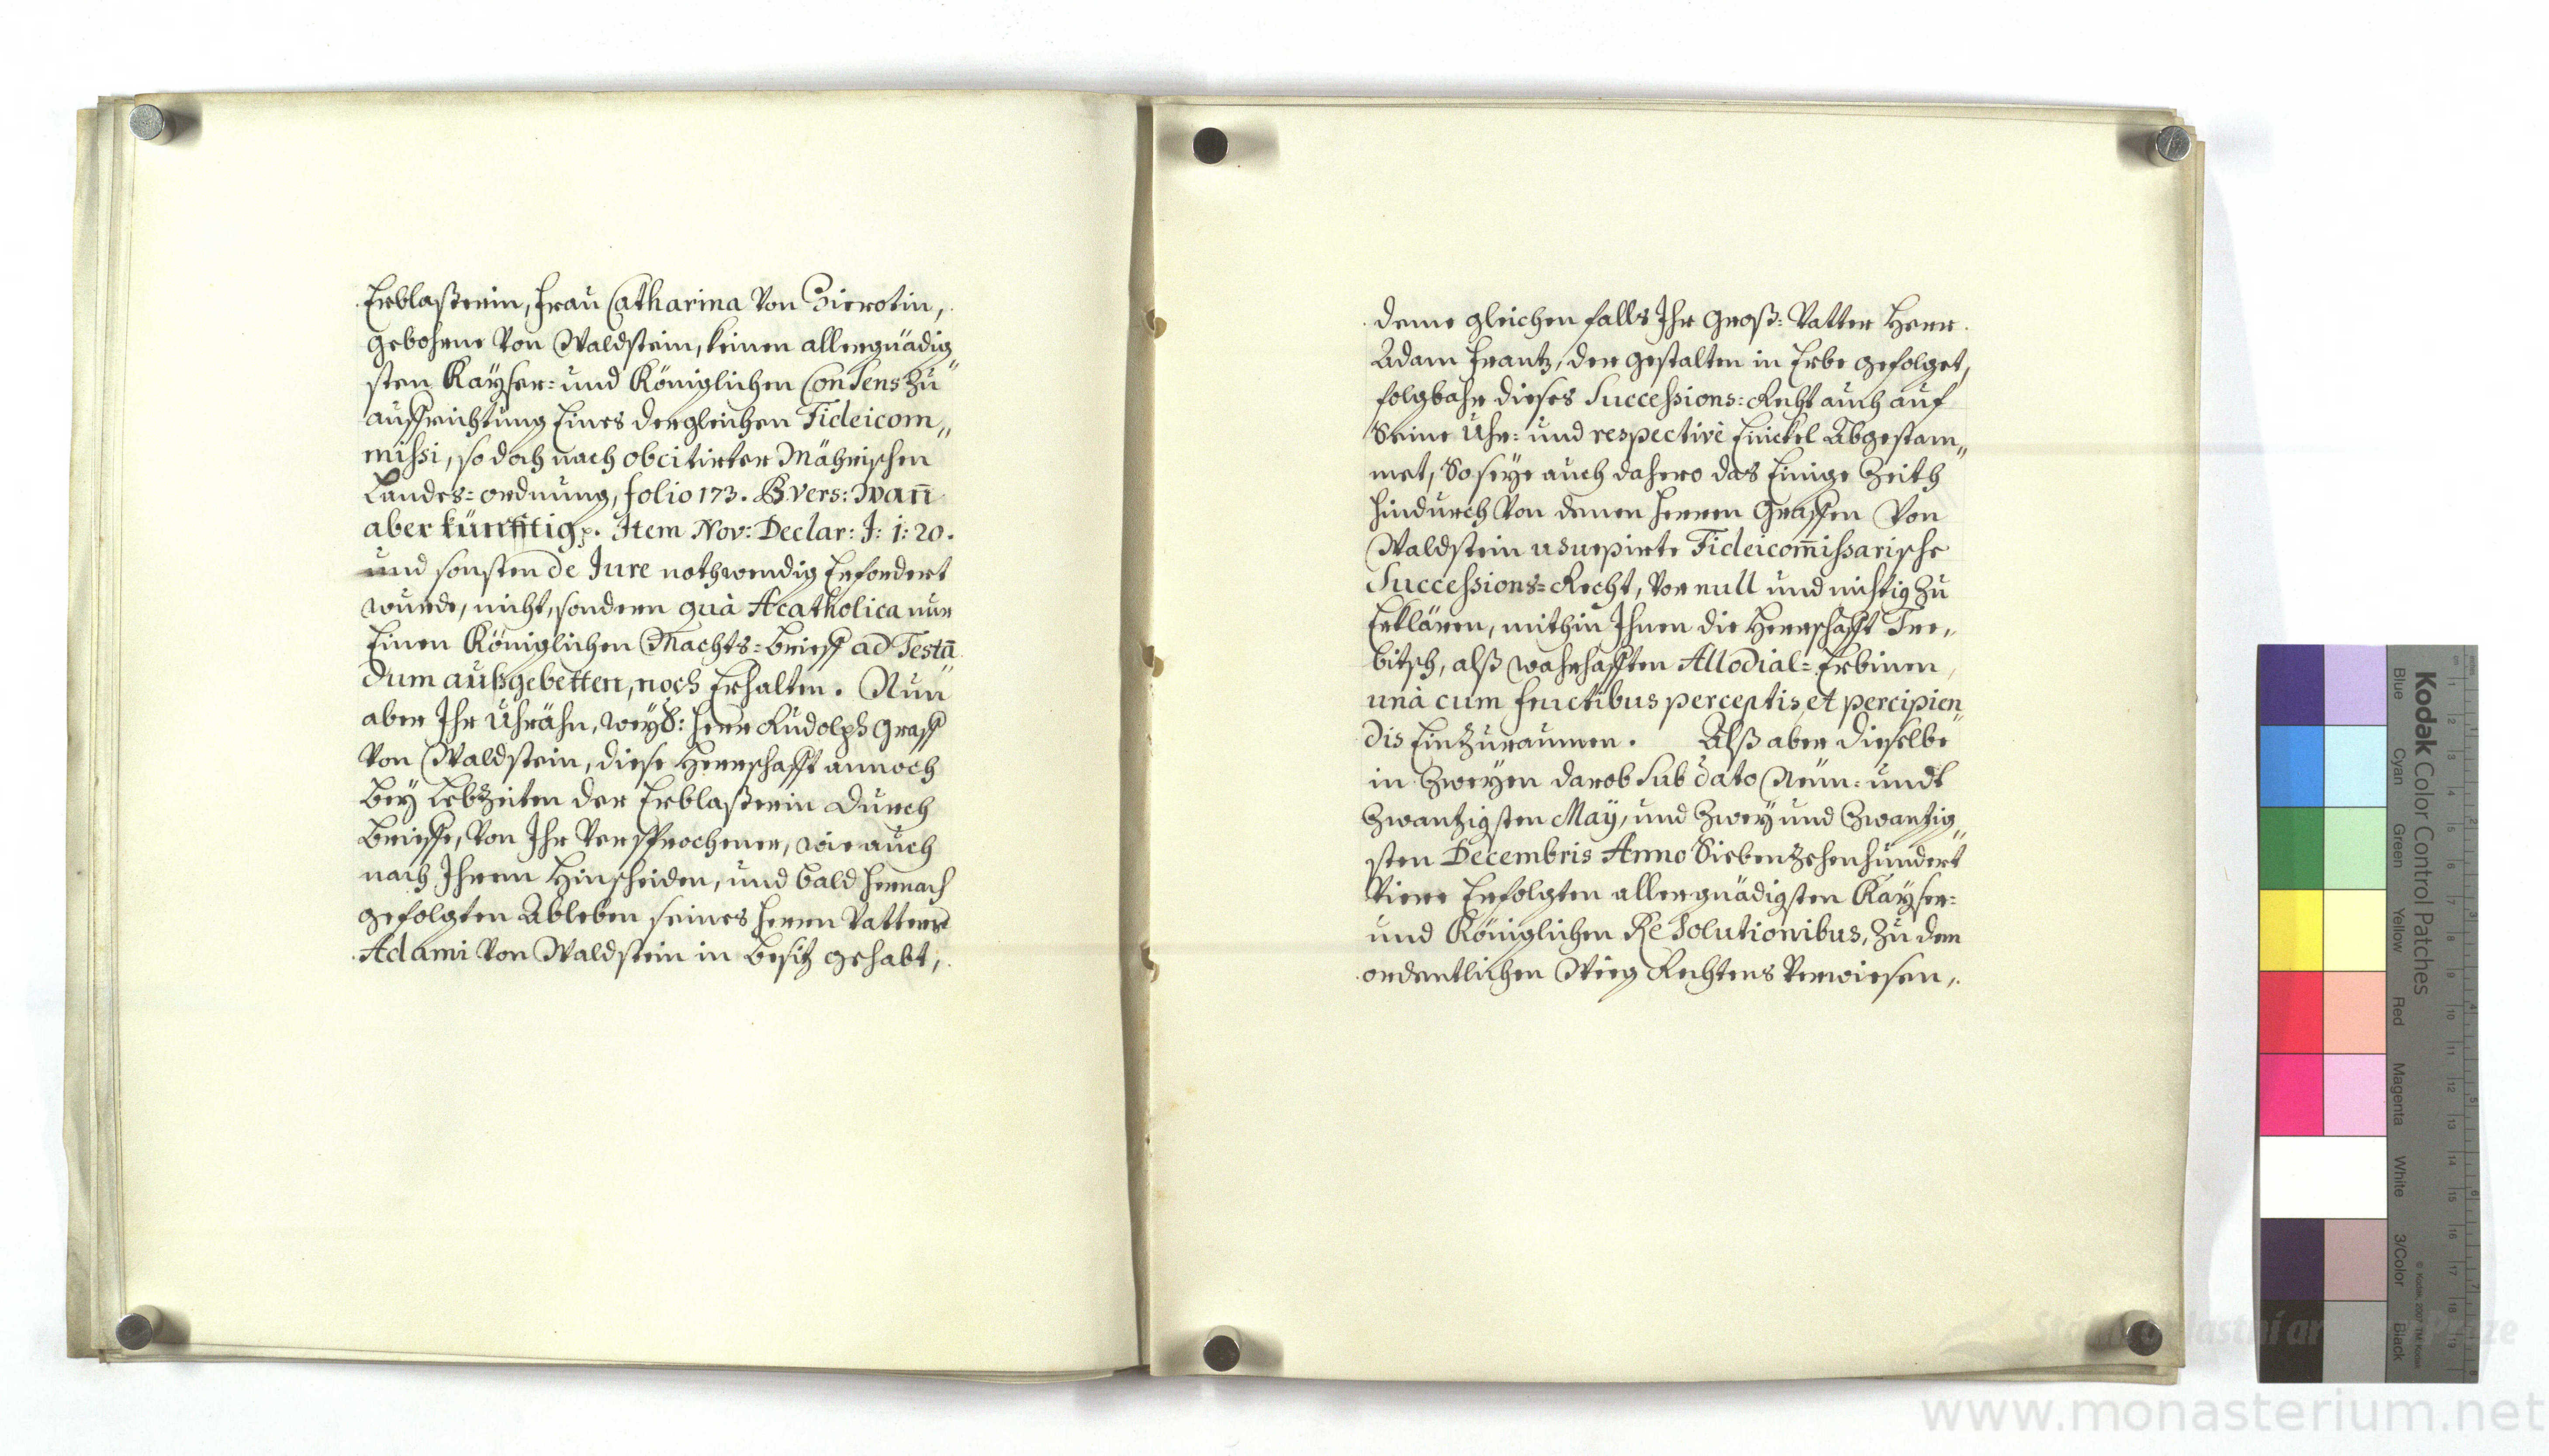 Erblaßerin, Frau Catharina Von Zierotin,
gebohrne Von Waldstein, keinen allergnädig„
sten Kaÿser= und Königlichen Consens zu
auffrichtung Eines dergleichen Fideicom„
missi, so doch nach obcitirter Mährischen
Landes=ordnung, folio 173. B vers: wañ
aber künfftig p. Item Nov: Declar: J: i: 20.
und sonsten de Jure nothwendig Erfordert
wurde, nicht, sondern quà Acatholica nur
Einen Königlichen Machts=brieff ad Testā„
dum außgebetten, noch Erhalten. Nun
aber Ihr Uhrähn, weÿl: Herr Rudolph Graff
Von Waldstein, diese Herrschafft annoch
beÿ lebzeiten der Erblaßerin durch
brieffe, Von Ihr Versprochener, wie auch
nach Ihrem Hinscheiden, und bald hernach
gefolgten Ableben seines Herrn Vatters
Adami Von Waldstein in besitz gehabt,
deme gleichen falls Ihr Groß=Vatter Herr
Adam Frantz, der gestalten in Erbe gefolget,
folgbahr dieses Successions=Recht auch auf
Seine Uhr= und respectivè Enickel Abgestam„
met, So seÿe auch dahero das Einige Zeith
hindurch Von denen Herren Graffen Von
Waldstein usurpirte Fideicom̃issarische
Successions=Recht, vor null und nichtig zu
Erklären, mithin Ihnen die Herrschafft Tre„
bitsch, alß wahrhafften Allodial=Erbinen,
unà cum fructibus perceptis, et percipien„
dis Einzuraumen. Alß aber dieselbe
in Zweÿen darob sub dato Neün= undt
Zwantzigsten Maÿ, und Zweÿ und Zwantzig„
sten Decembris Anno Siebenzehenhundert
Viere Erfolgten allergnädigsten Kaÿser=
und Königlichen Resolutionibus, zu dem
ordentlichen Weeg Rechtens Verwiesen,
Kodak Color Control Patches
Blue Cyan Green Yellow Red Magenta White 3/Color Black
www.monasterium.net